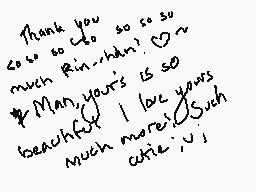 Thank you
so so so so so so so
much Rin--chan! ♡~
* Man, your's is so
beautiful I love yours
much more! Such
cutie ;v;